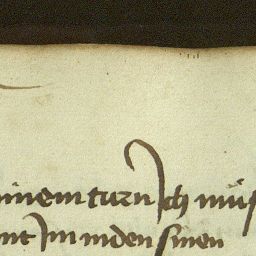 minem turn Ich müs
nt Im in den sinen